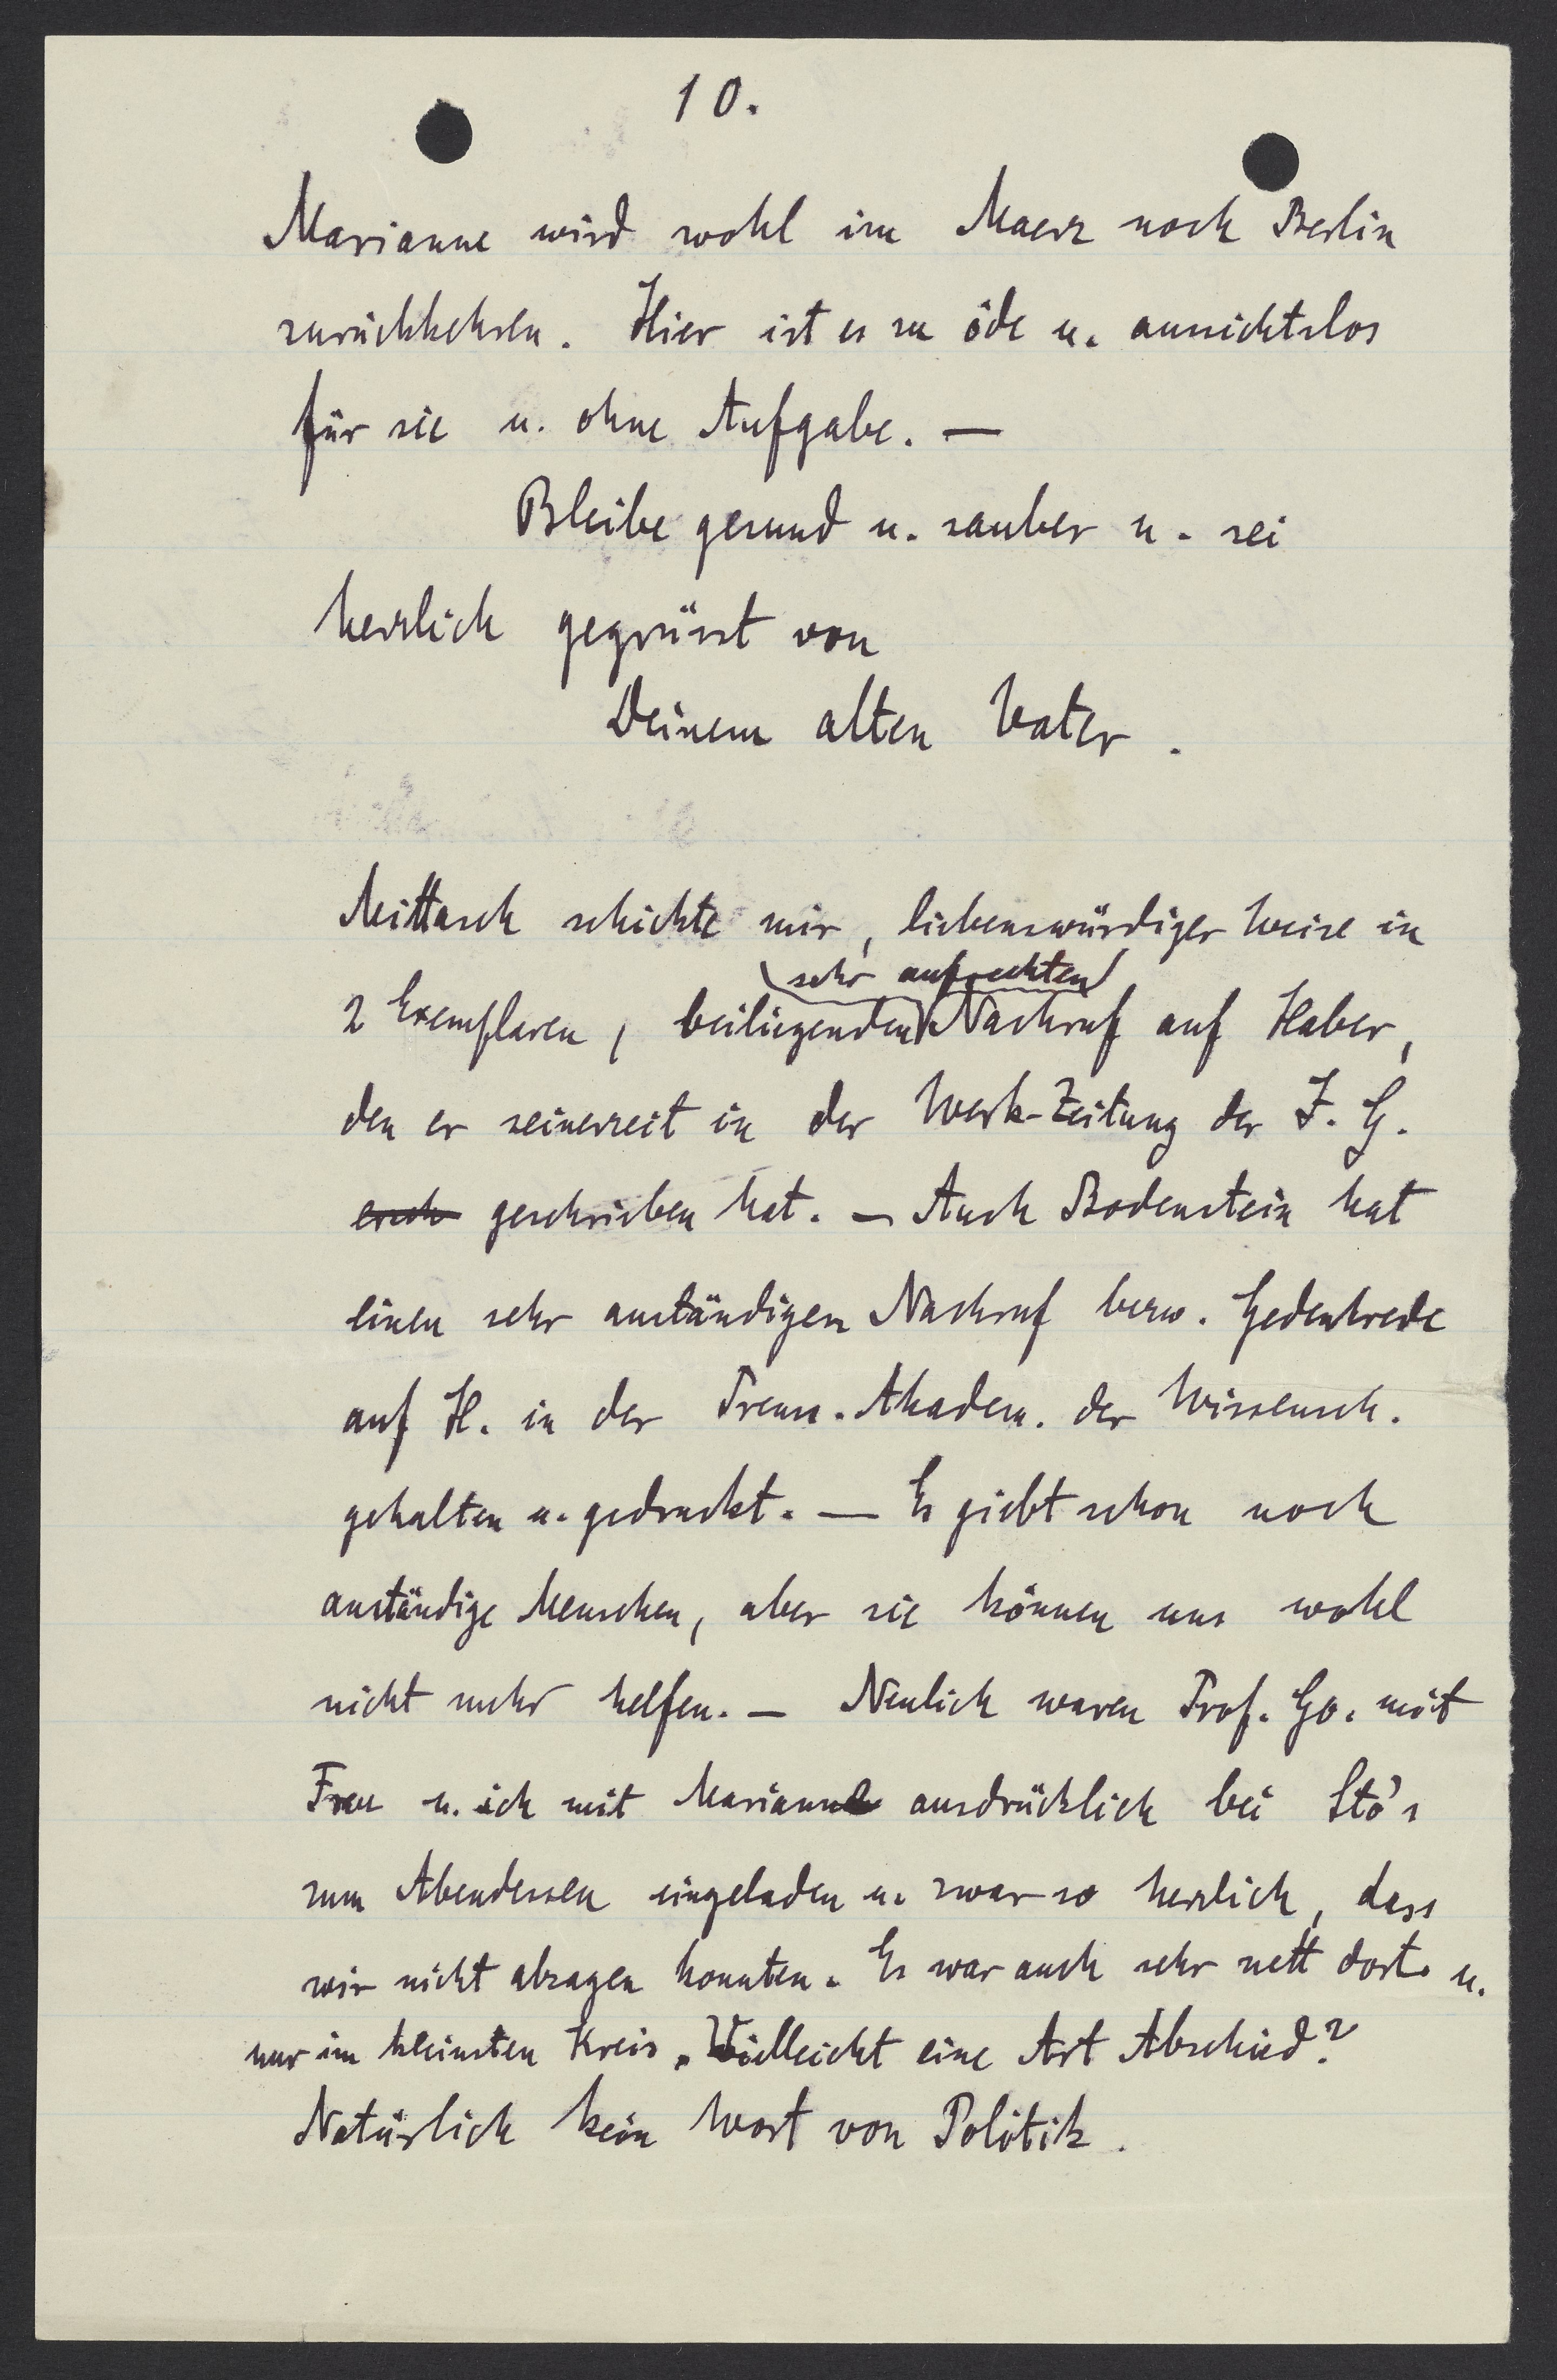 10.
Marianne wird wohl im Maerz nach Berlin
zurückkehren. Hier ist es zu öde u. aussichtslos
für sie u. ohne Aufgabe. —
Bleibe gesund u. sauber u. sei
herzlich gegrüsst von
Deinem alten Vater.
Mittasch schickte mir, liebenswürdiger Weise in
sehr aufrechten
2 Exemplaren, beiliegenden Nachruf auf Haber,
den er seinerzeit in der Werk-Zeitung der I. G.
ersch geschrieben hat. — Auch Bodenstein hat
einen sehr anständigen Nachruf bezw. Gedenkrede
auf H. in der Preuss. Akadem. der Wissensch.
gehalten u. gedruckt. — Es giebt schon noch
anständige Menschen, aber sie können uns wohl
nicht mehr helfen. — Neulich waren Prof. Go. mit
Frau u. ich mit Marianne ausdrücklich bei Stö's
zum Abendessen eingeladen u. zwar so herzlich, dass
wir nicht absagen konnten. Es war auch sehr nett dort u.
nur im kleinsten Kreis. Vielleicht eine Art Abschied?
Natürlich kein Wort von Politik.